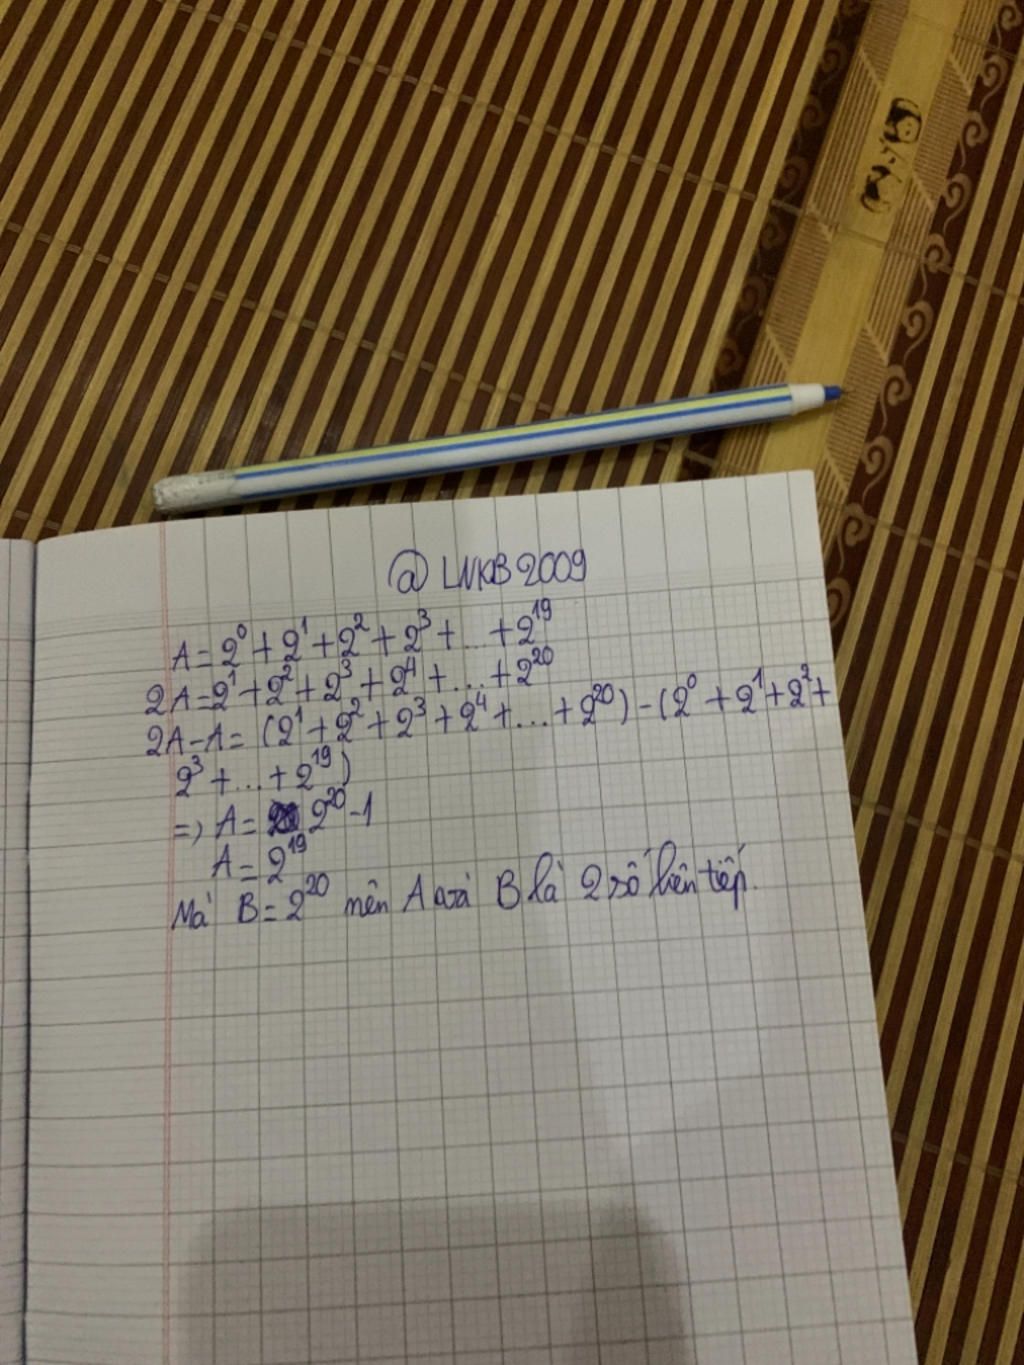 @ LNKB2009
A = 2⁰ + 2¹ + 2² + 2³ + ... + 2¹⁹
2A = 2¹ + 2² + 2³ + 2⁴ + ... + 2²⁰
2A - A = (2¹ + 2² + 2³ + 2⁴ + ... + 2²⁰) - (2⁰ + 2¹ + 2² +
2³ + ... + 2¹⁹)
=> A = 2²⁰ - 1
A = 2¹⁹
Mà B = 2²⁰ nên A và B là 2 số liên tiếp.